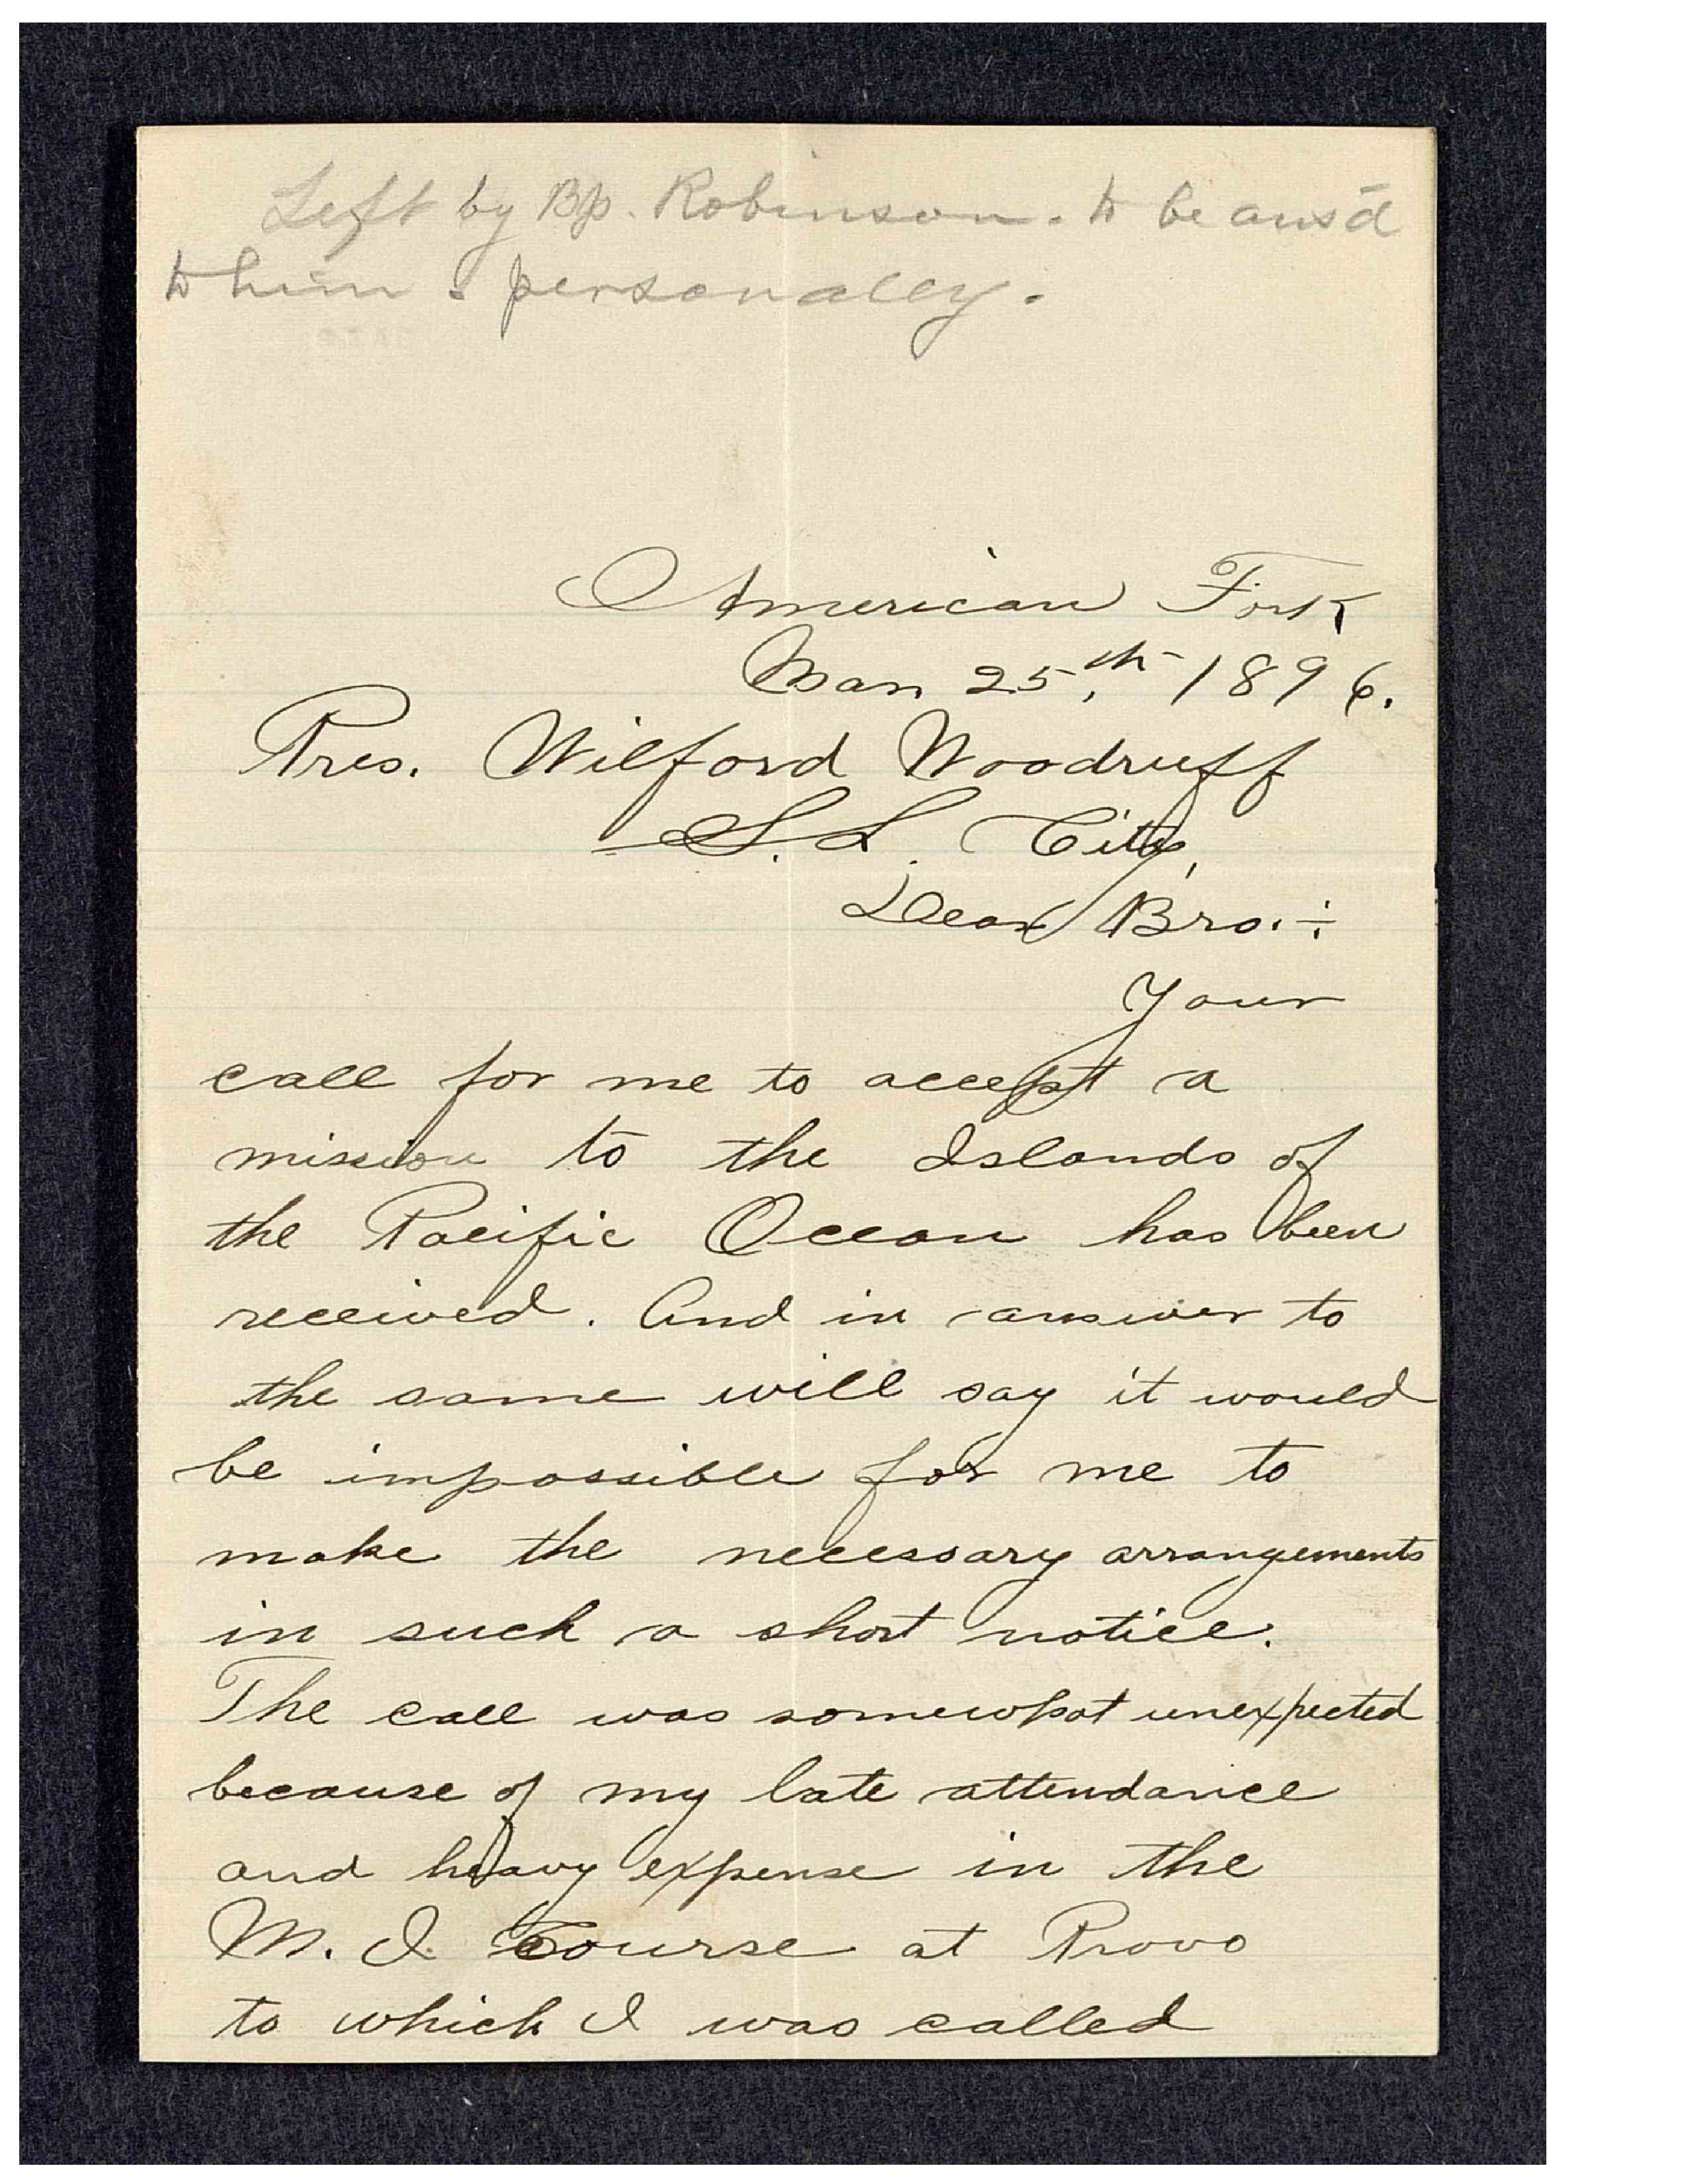 Left by Bp. Robinson. to be ans'd
to him. personally.
American Fork
Mar. 25th, 1896.
Pres. Wilford Woodruff
S. L. City,
Dear Bro.:
Your
call for me to accept a
mission to the Islands of
the Pacific Ocean has been
received. And in answer to
the same will say it would
be impossible for me to
make the necessary arrangements
in such a short notice.
The call was somewhat unexpected
because of my late attendance
and heavy expense in the
M. I. Course at Provo
to which I was called